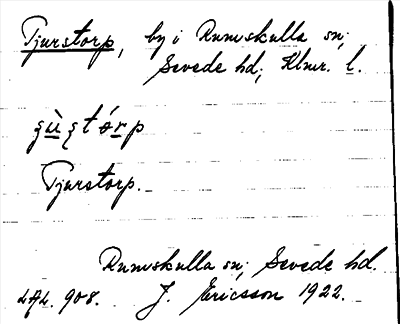 Tjurstorp, by i Rumskulla sn;
Sevede hd; Klmr. l.
Tjurstorp.
Rumskulla sn; Sevede hd.
LAL. 908. J. Ericsson 1922.